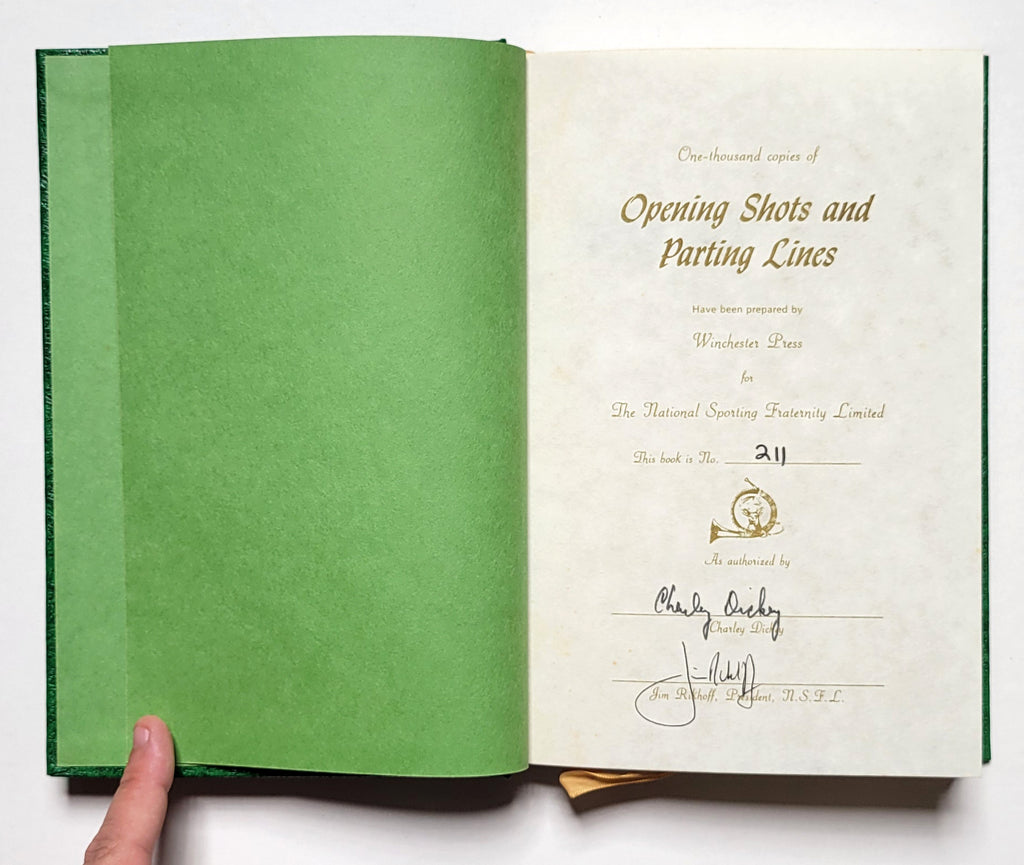 One-thousand copies of
Opening Shots and
Parting Lines
Have been prepared by
Winchester Press
for
The National Sporting Fraternity Limited
This book is No. 211
As authorized by
Charley Dickey
Charley Dickey
Jim Rikhoff
Jim Rikhoff, President, N.S.F.L.